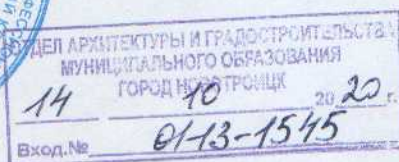 ОТДЕЛ АРХИТЕКТУРЫ И ГРАДОСТРОИТЕЛЬСТВА
МУНИЦИПАЛЬНОГО ОБРАЗОВАНИЯ
ГОРОД НОВОТРОИЦК
14 10 2020 г.
Вход.№ 01-13-1545